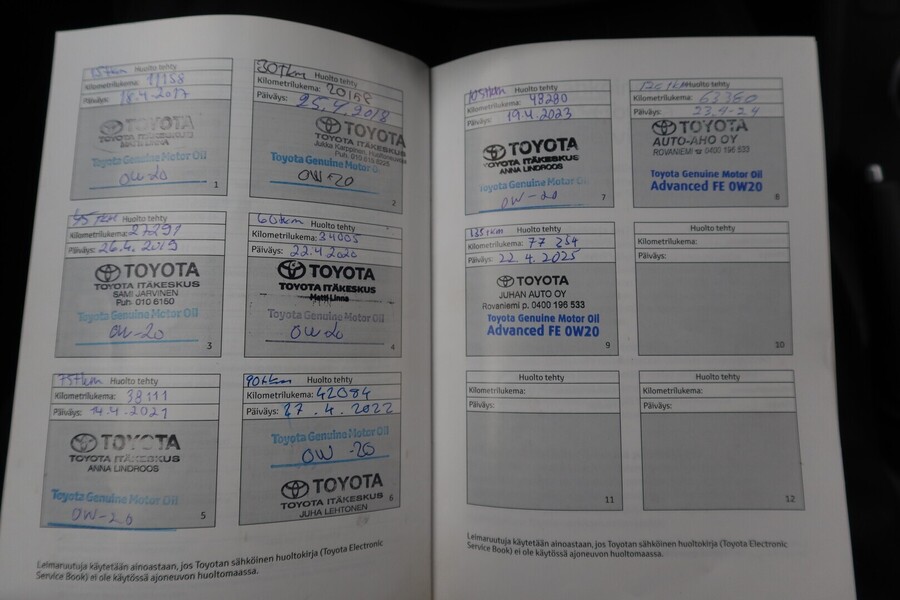 15tkm Huolto tehty
Kilometrilukema: 11158
Päiväys: 18.4-2017
TOYOTA
TOYOTA ITÄKESKUS
MATTI LINNA
Toyota Genuine Motor Oil
0W-20
1
30tkm Huolto tehty
Kilometrilukema: 20168
Päiväys: 25.4.2018
TOYOTA
TOYOTA ITÄKESKUS
Jukka Karppinen, Huoltoneuvoja
Toyota Genuine Motor Oil
0W-20
2
45 tkm Huolto tehty
Kilometrilukema: 27291
Päiväys: 26.4. 2019
TOYOTA
TOYOTA ITÄKESKUS
SAMI JÄRVINEN
Puh: 010 8150
Toyota Genuine Motor Oil
0W-20
3
60tkm Huolto tehty
Kilometrilukema: 34005
Päiväys: 22.4 2020
TOYOTA
TOYOTA ITÄKESKUS
Matti Linna
Toyota Genuine Motor Oil
0W20
4
75tkm Huolto tehty
Kilometrilukema: 38111
Päiväys: 14.4.2021
TOYOTA
TOYOTA ITÄKESKUS
ANNA LINDROOS
Toyota Genuine Motor Oil
0W-20
5
90tkm Huolto tehty
Kilometrilukema: 42084
Päiväys: 27.4.2022
Toyota Genuine Motor Oil
0W-20
TOYOTA
TOYOTA ITÄKESKUS
JUHA LEHTONEN
6
Leimaruutuja käytetään ainoastaan, jos Toyotan sähköinen huoltokirja (Toyota Electronic
Service Book) ei ole käytössä ajoneuvon huoltomaassa.
105tkm Huolto tehty
Kilometrilukema: 48280
Päiväys: 19.4.2023
TOYOTA
TOYOTA ITÄKESKUS
ANNA LINDROOS
Toyota Genuine Motor Oil
0W-20
7
Huolto tehty
Kilometrilukema: 63360
Päiväys: 23.4-24
TOYOTA
AUTO-AHO OY
ROVANIEMI ☎ 0400 196 533
Toyota Genuine Motor Oil
Advanced FE 0W20
8
135tkm Huolto tehty
Kilometrilukema: 77 254
Päiväys: 22.4.2025
TOYOTA
JUHAN AUTO OY
Rovaniemi p. 0400 196 533
Toyota Genuine Motor Oil
Advanced FE 0W20
9
Huolto tehty
Kilometrilukema:
Päiväys:
10
Huolto tehty
Kilometrilukema:
Päiväys:
11
Huolto tehty
Kilometrilukema:
Päiväys:
12
Leimaruutuja käytetään ainoastaan, jos Toyotan sähköinen huoltokirja (Toyota Electronic
Service Book) ei ole käytössä ajoneuvon huoltomaassa.